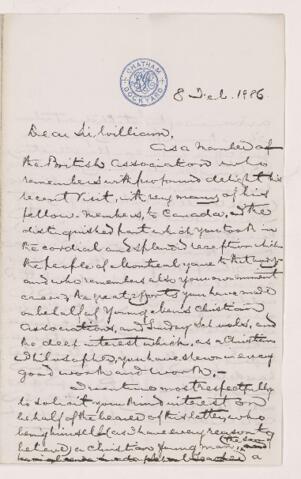 CHATHAM
DOCKYARD
8 Feb. 1886
Dear Sir William,
As a Member of
the British Association who
remembers with profound delight his
recent visit, with very many of his
fellow-Members, to Canada, & the
distinguished part which you took in
the cordial and splendid reception which
the people of Montreal gave to that
and who remembers also your
the great efforts you have made
on behalf of Young Men's Christian
Associations, and Sunday Schools, and
the deep interest which, as a Christian
Philosopher, you have shewn in every
good word and work.
I venture most respectfully
to solicit your kind interest on
behalf of the bearer of this letter, who
being himself (as I have every reason to
believe) a Christian Young man, (the son of
a